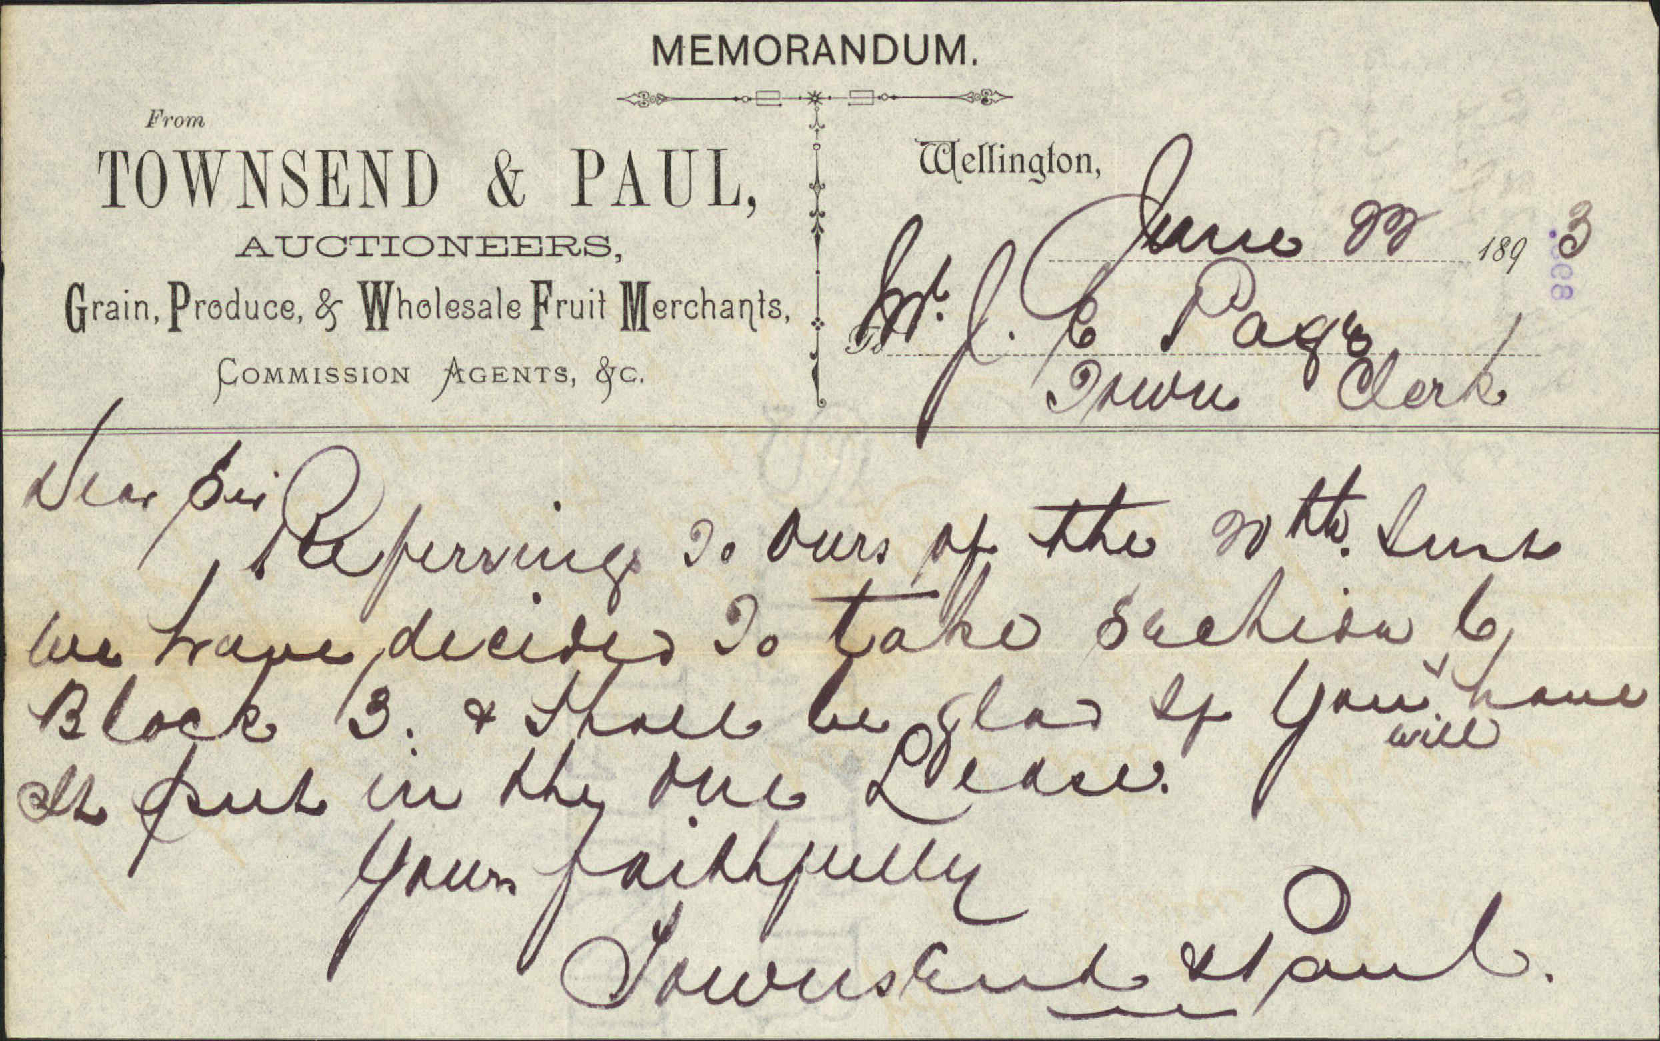 MEMORANDUM.
From
TOWNSEND & PAUL,
AUCTIONEERS,
Grain, Produce, & Wholesale Fruit Merchants,
COMMISSION AGENTS, &C.
Wellington,
June 22 1893
To Mr. J. E Page
Town Clerk
Dear Sir
Referring To ours of the 20th. Inst
we have decided To take Section 6,
Block 3. & Shall be glad if you will have
it put in the one Lease.
Yours faithfully
Townsend & Paul.